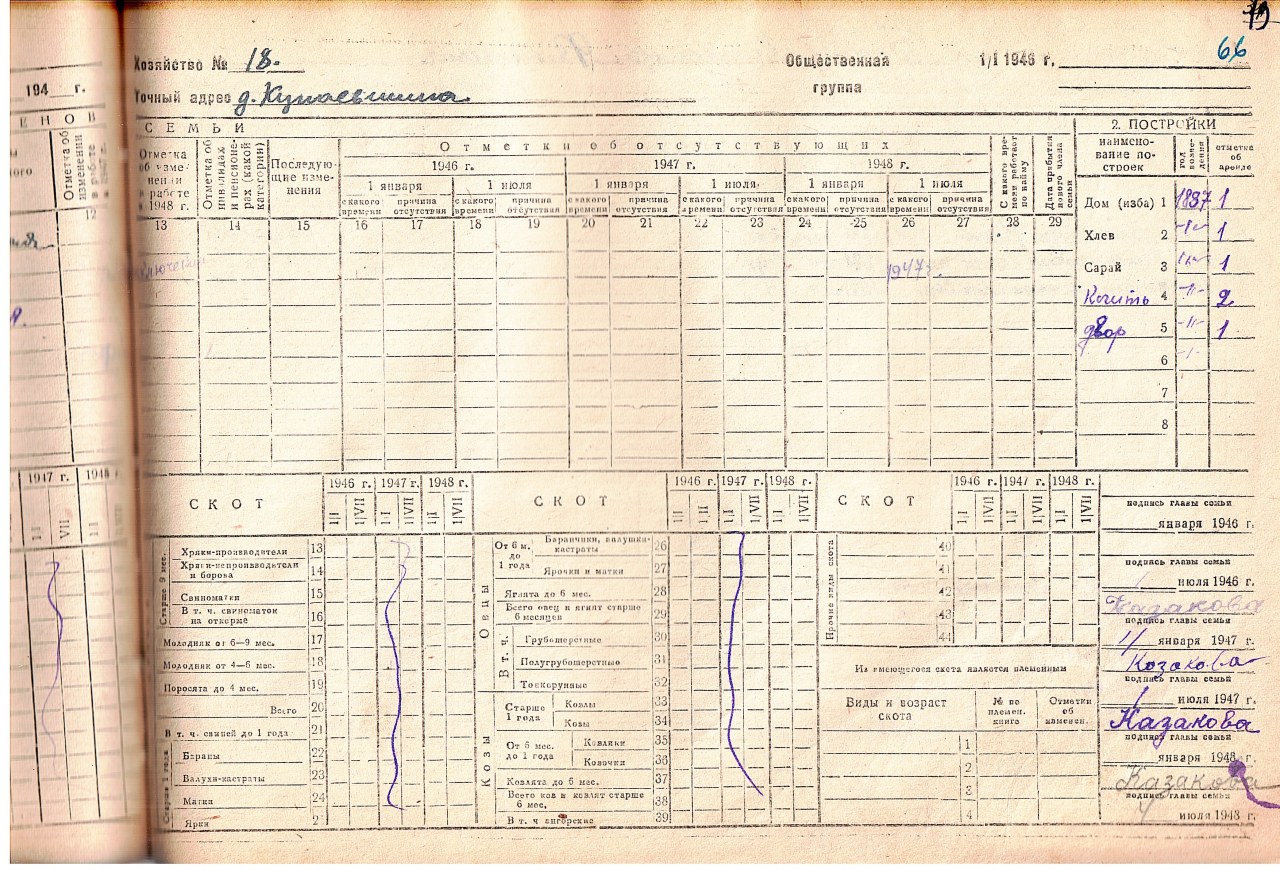 66
Хозяйство № 18.
Общественная группа
1/I 1946 г.
Точный адрес д. Кунаевшина
194 г.
ЕНОВ
Отметка об изменении в работе
12
СЕМЬИ
Отметка об изменении в работе в 1948 г.
Отметка об инвалидах и пенсионерах (какой категории)
Последующие изменения
Отметки об отсутствующих
1946 г.
1947 г.
1948 г.
1 января
1 июля
1 января
1 июля
1 января
1 июля
с какого времени
причина отсутствия
с какого времени
причина отсутствия
с какого времени
причина отсутствия
с какого времени
причина отсутствия
с какого времени
причина отсутствия
с какого времени
причина отсутствия
С какого времени работает по найму
Дата прибытия нового члена семьи
13 14 15 16 17 18 19 20 21 22 23 24 25 26 27 28 29
1947 г.
2. ПОСТРОЙКИ
наименование построек
год возведения
отметка об аренде
Дом (изба) 1 1887 1
Хлев 2 -"- 1
Сарай 3 -"- 1
4 -"- 2
двор 5 -"- 1
6 -"-
7
8
1947 г. 1948 г.
1/I VII 1/I
СКОТ
1946 г. 1947 г. 1948 г.
1/I 1/VII 1/I 1/VII 1/I 1/VII
Старше 9 мес.
Хряки-производители 13
Хряки-непроизводители и борова 14
Свиноматки 15
В т. ч. свиноматок на откорме 16
Молодняк от 6—9 мес. 17
Молодняк от 4—6 мес. 18
Поросята до 4 мес. 19
Всего 20
В т. ч. свиней до 1 года 21
Старше 1 года
Бараны 22
Валухи-кастраты 23
Матки 24
Ярки 2
СКОТ
1946 г. 1947 г. 1948 г.
1/I 1/VII 1/I 1/VII 1/I 1/VII
Овцы
От 6 м. до 1 года
Баранчики, валушки-кастраты 26
Ярочки и матки 27
Ягнята до 6 мес. 28
Всего овец и ягнят старше 6 месяцев 29
В т. ч.
Грубошерстные 30
Полугрубошерстные 31
Тонкорунные 32
Козы
Старше 1 года
Козлы 33
Козы 34
От 6 мес. до 1 года
Козлики 35
Козочки 36
Козлята до 6 мес. 37
Всего коз и козлят старше 6 мес. 38
В т. ч ангорские 39
СКОТ
1946 г. 1947 г. 1948 г.
1/I 1/VII 1/I 1/VII 1/I 1/VII
Прочие виды скота
40
41
42
43
44
Из имеющегося скота являются племенным
Виды и возраст скота
№ по племен. книге
Отметки об изменен.
1
2
3
4
подпись главы семьи
января 1946 г.
подпись главы семьи
июля 1946 г.
Казакова
подпись главы семьи
1/ января 1947 г.
Козакова
подпись главы семьи
июля 1947 г.
Казакова
подпись главы семьи
января 1948 г.
Казакова
подпись главы семьи
июля 1948 г.